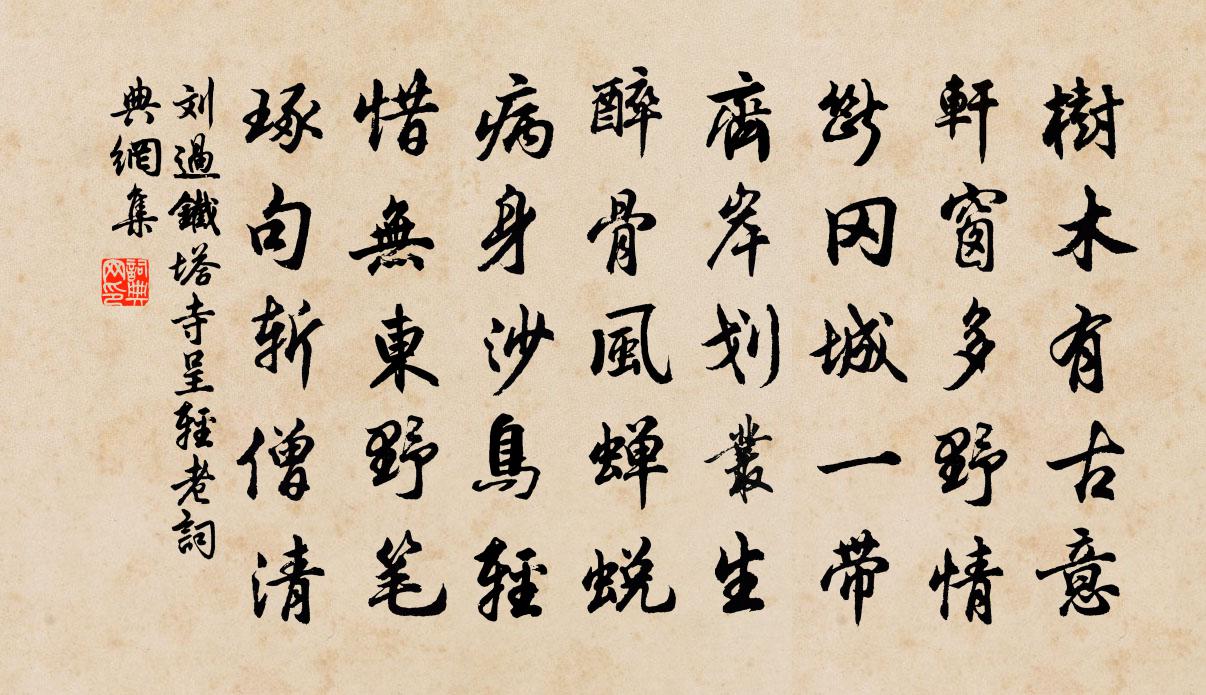 樹木有古意
軒窗多野情
斷冈城一帶
齊岸划叢生
醉骨風蝉蜕
病身沙鳥輕
惜無東野笔
琢句斩僧清
刘過鐵塔寺呈輕老詞
典網集
詞典
网印